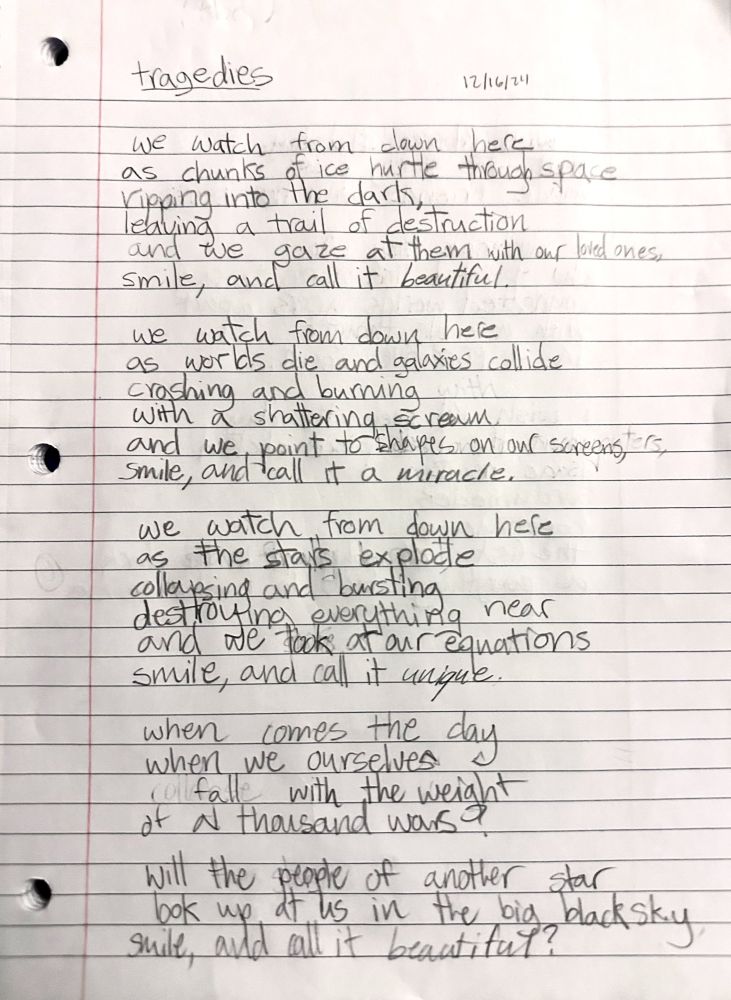 tragedies 12/16/24
we watch from down here
as chunks of ice hurtle through space
ripping into the dark,
leaving a trail of destruction
and we gaze at them with our loved ones,
smile, and call it beautiful.
we watch from down here
as worlds die and galaxies collide
crashing and burning
with a shattering scream
and we point to shapes on our screens,
smile, and call it a miracle.
we watch from down here
as the stars explode
collapsing and bursting
destroying everything near
and we look at our equations
smile, and call it unique.
when comes the day
when we ourselves
fall with the weight
of a thousand wars?
will the people of another star
look up at us in the big black sky,
smile, and call it beautiful?